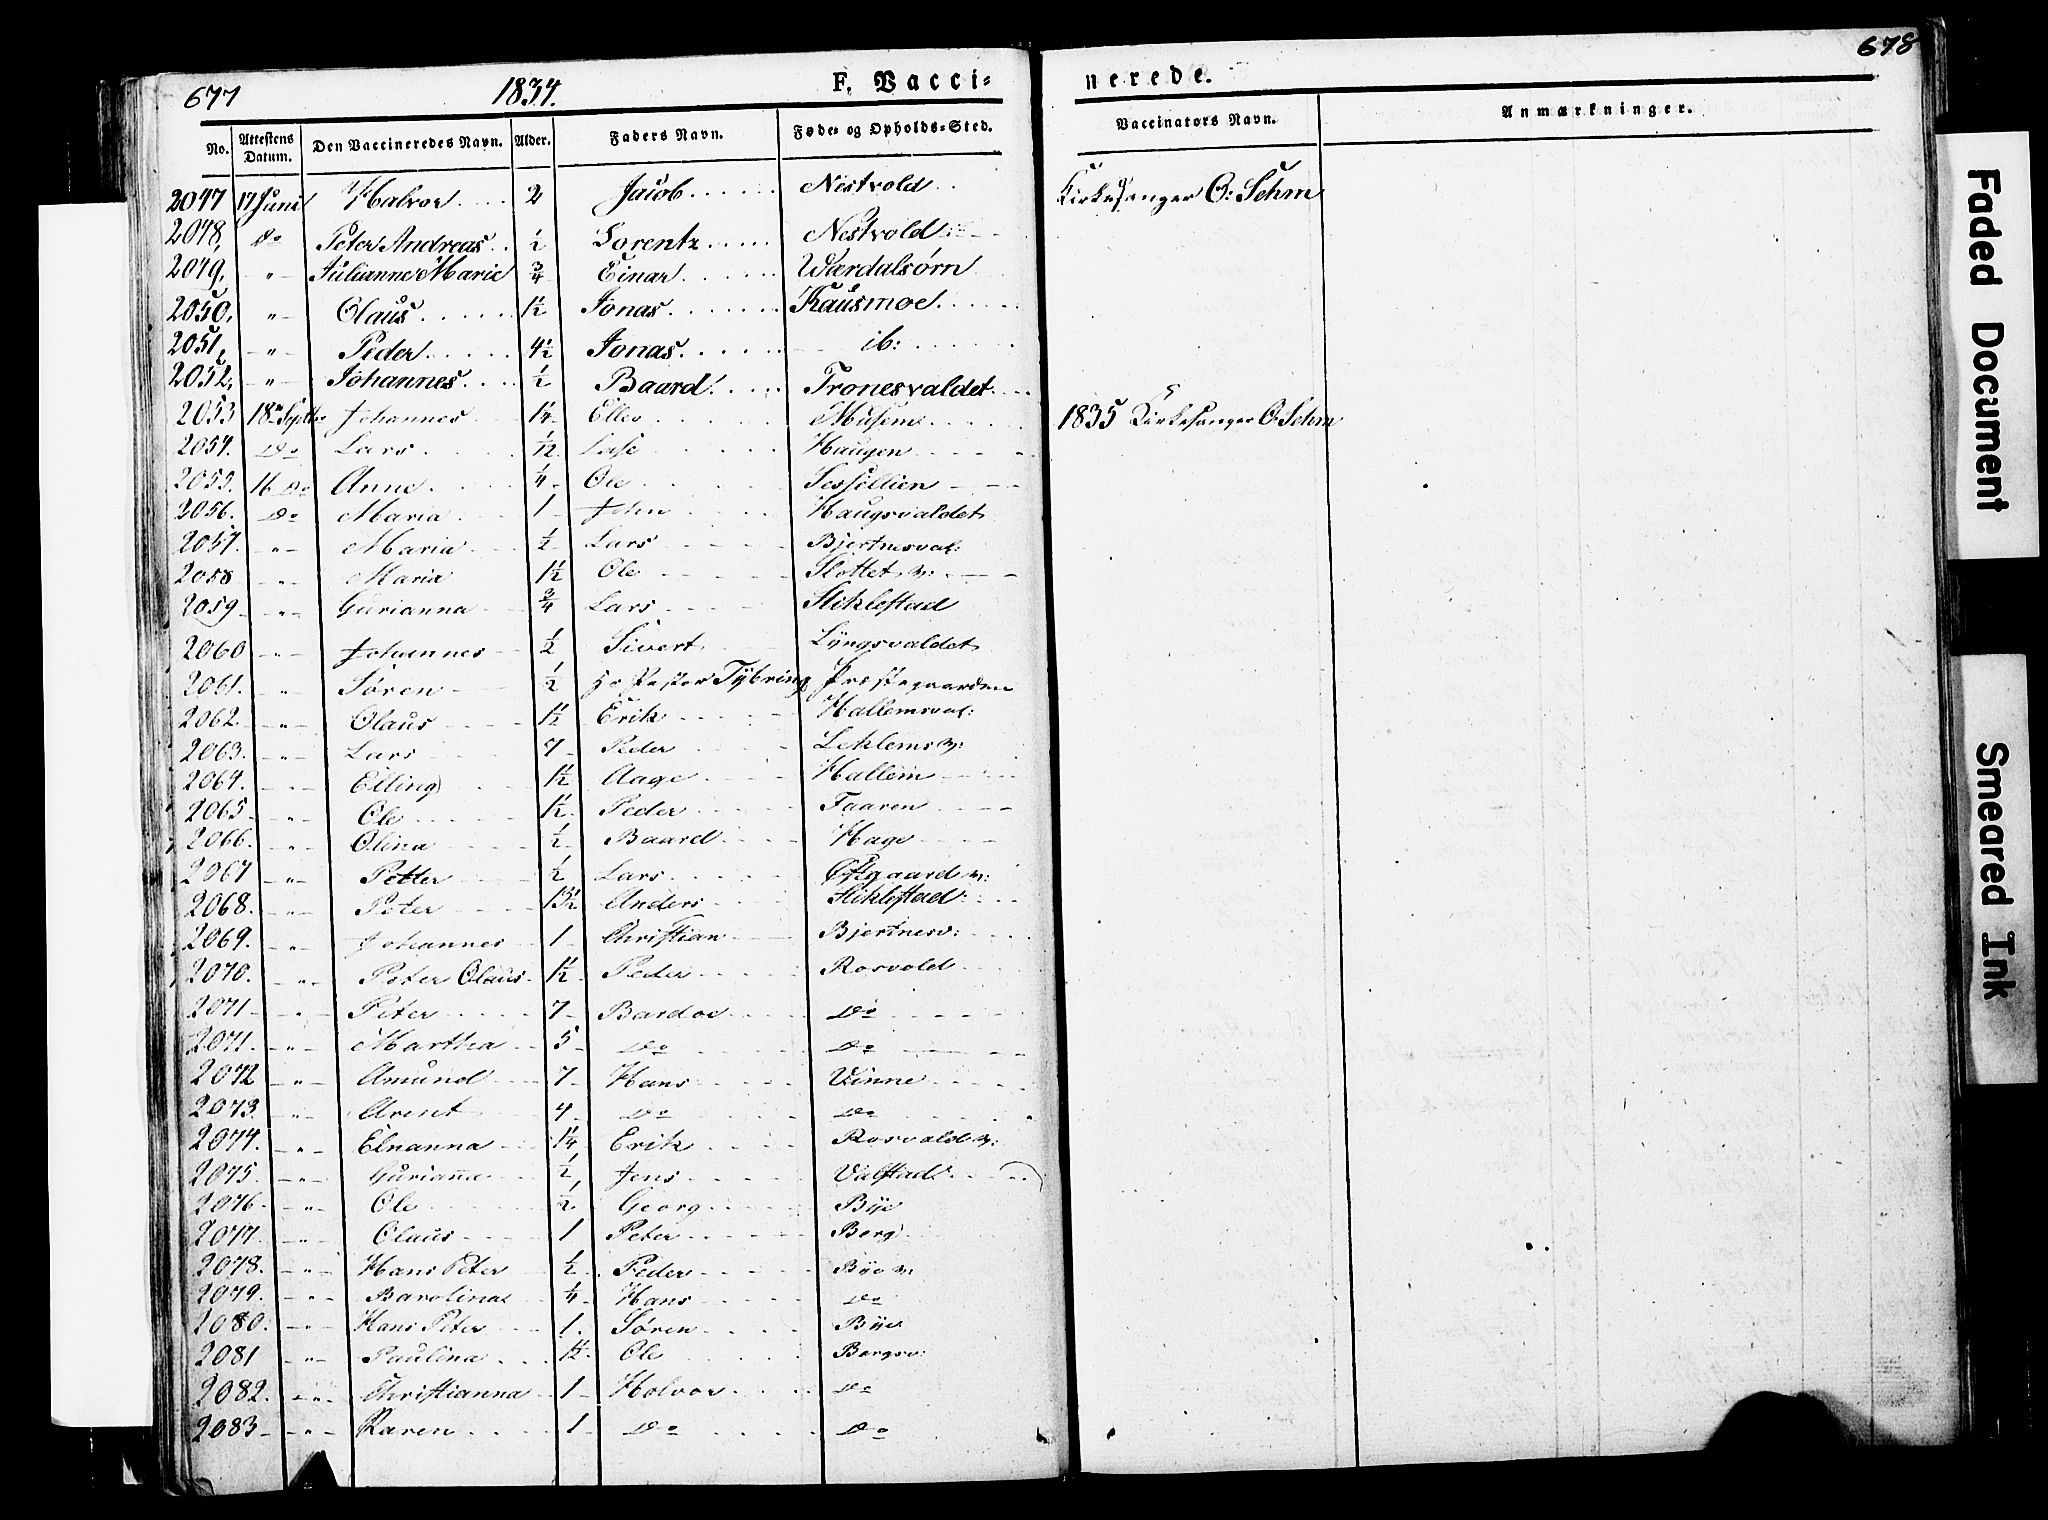 677 1834. F. Vacci-nerede. 678
No. Attestens Datum. Den Vaccineredes Navn. Alder. Faders Navn. Føde- og Opholds-Sted. Vaccinators Navn. Anmærkninger.
2047 17 Juni Halvor 2 Jacob Nestvold Kirkesanger O: Sehm
2048, Do Peter Andreas ½ Lorentz Nestvold
2049, " Julianne Marie ¾ Einar Wærdalsørn
2050, " Olaus 1½ Jonas Kausmoe
2051, " Peder 4½ Jonas ib:
2052, " Johannes ½ Baard Tronesvaldet
2053 18 Septbr Johannes 1¼ Ellev Musem 1835 Kirkesanger O. Sehm
2054. Do Lars ½ Haugen
2055. 16 Do Anne ¼ Ole
2056. Do Maria 1 John Haugsvaldet
2057. " Maria ½ Lars Bjertnesval:
2058 " Maria 1½ Ole Slottet v:
2059 " Gurianna ¾ Lars Stiklestad
2060 " Johannes ½ Sivert Lyngsvaldet
2061. " Søren ½ Hr Pastor Tybring Præstegaarden
2062. " Olaus 1½ Erik Hallemsval:
2063. " Lars 7 Peder Leklems v:
2064. " Elling 1½ Aage Hallem
2065 " Ole 1½ Peder Faaren
2066. " Olina ½ Baard Hage
2067 " Petter ½ Lars Østgaard v:
2068. " Peter 13½ Anders Stiklestad
2069. " Johannes 1 Christian Bjertnesv:
2070. " Peter Olaus 1½ Peder Rosvold
2071 " Peter 7 Bardoe Do
2071. " Martha 5 Do Do
2072 " Amund 7 Hans Vinne
2073. " Arent 4 Do Do
2074. " Elnanna 1¼ Erik Rosvald v:
2075 " Gurianna ½ Jens Valstad
2076 " Ole ½ Georg Bye
2077. " Olaus 1 Peter Berg
2078. " Hans Peter ½ Peder Bye v:
2079. " Barolina ¼ Hans Do
2080. " Hans Peter 1. Søren Bye
2081 " Paulina 1½ Ole Bergsv:
2082. " Christianna 1 Holvor Do
2083 " Karen 1 Do Do
Faded Document
Smeared Ink